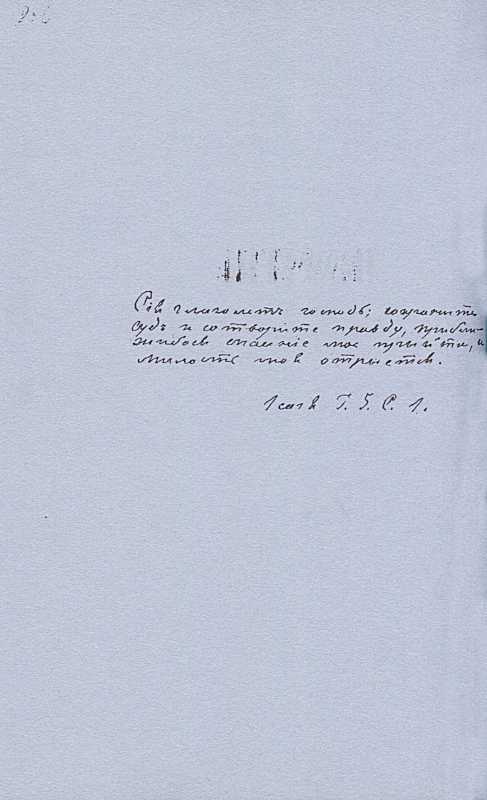 Сія глаголетъ господь; сохраните
судъ и сотворите правду, прибли-
жибося спасеніе мое пріити, и
милость моя открыется.
Ісаія Г. 5. С. 1.